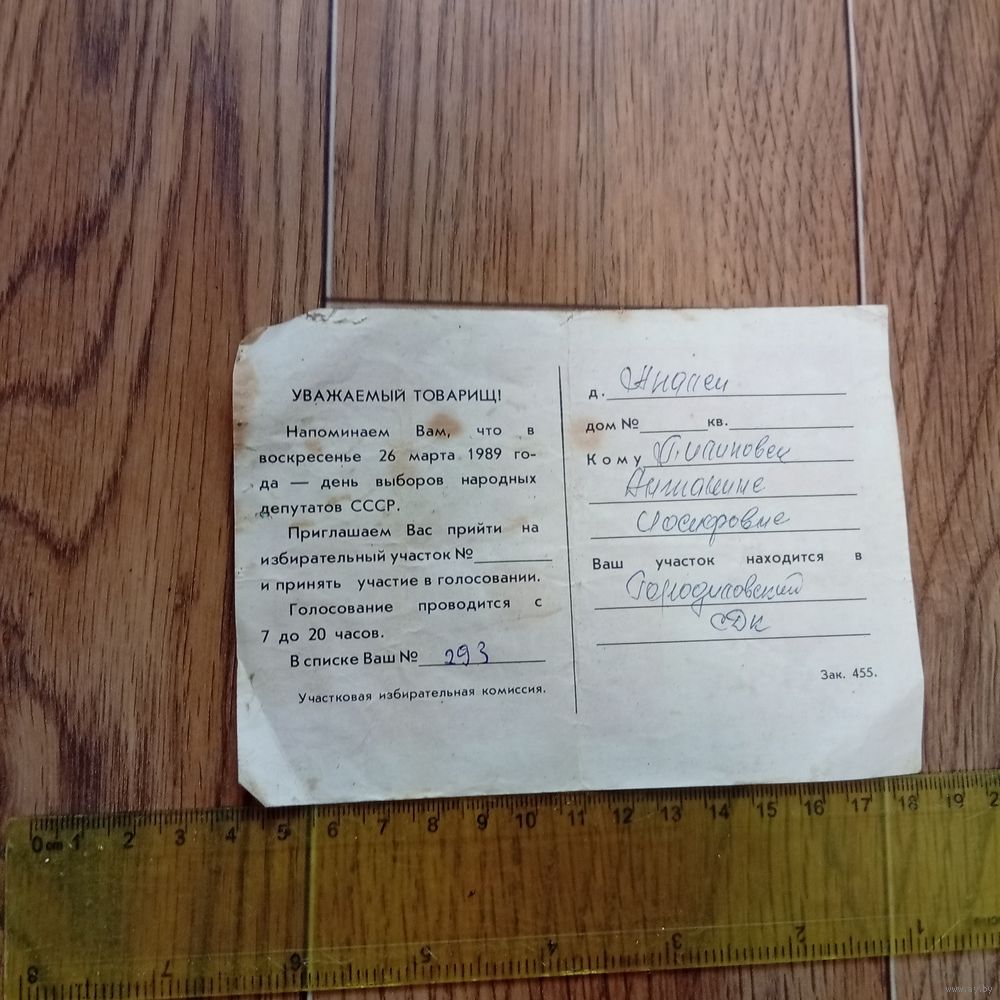 УВАЖАЕМЫЙ ТОВАРИЩ!
Напоминаем Вам, что в
воскресенье 26 марта 1989 го-
да — день выборов народных
депутатов СССР.
Приглашаем Вас прийти на
избирательный участок №
и принять участие в голосовании.
Голосование проводится с
7 до 20 часов.
В списке Ваш № 293
Участковая избирательная комиссия.
д.
дом № кв.
Кому
Антонине
Иосифовне
Ваш участок находится в
Городиловский
СДК
Зак. 455.
0 cm 1 2 3 4 5 6 7 8 9 10 11 12 13 14 15 16 17 18 19 2
8 7 6 5 4 3 2 1
www.ay.by